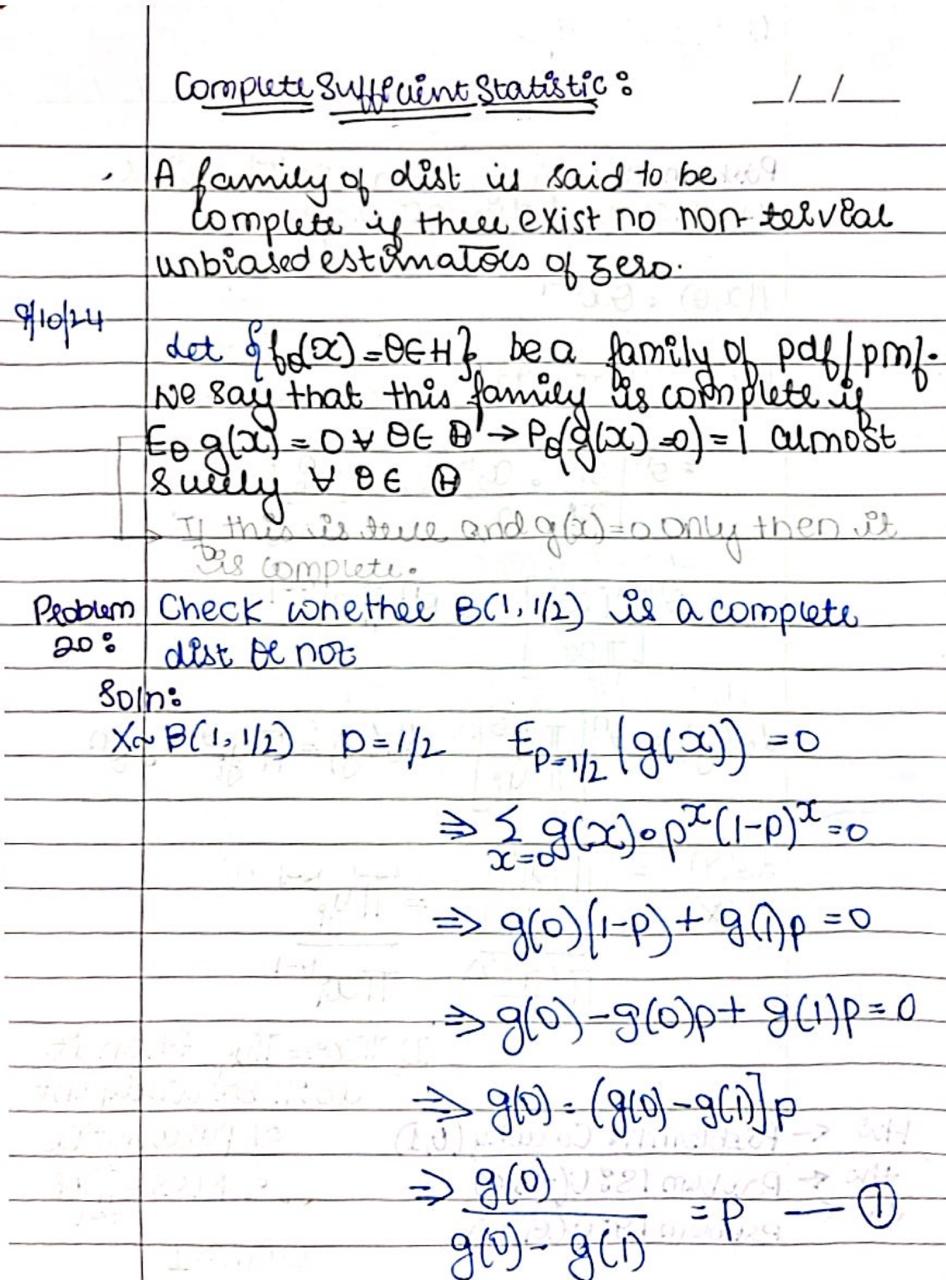 Complete Sufficient Statistic : _/_/_
A family of dist is said to be
complete if there exist no non-trivial
unbiased estimators of zero.
9/10/24
Let {fθ(x) = θ∈H} be a family of pdf/pmf.
We say that this family is complete if
Eθ g(x) = 0 ∀ θ∈ Θ → Pθ(g(x) = 0) = 1 almost
surely ∀ θ ∈ Θ
→ If this is true and g(x) = 0 only then it
is complete.
Problem 20: Check whether B(1, 1/2) is a complete
dist or not
Soln:
X~ B(1, 1/2) p = 1/2 E_{p=1/2} (g(x)) = 0
⇒ Σ_{x=0} g(x) • p^x (1-p)^x = 0
⇒ g(0) (1-p) + g(1) p = 0
⇒ g(0) - g(0)p + g(1)p = 0
⇒ g(0) = (g(0) - g(1)] p
⇒ g(0) / g(0) - g(1) = p — ①